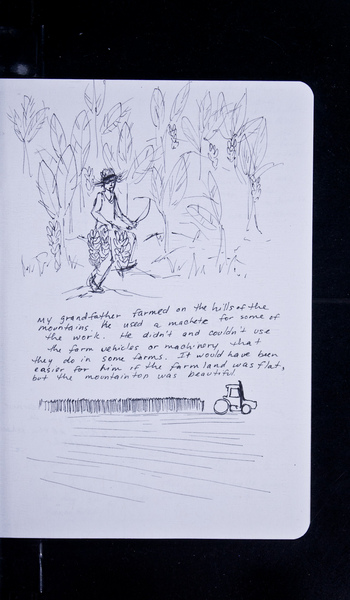 My grandfather farmed on the hills of the
mountains. He used a machete for some of
the work. He didn't and couldn't use
the farm vehicles or machinery that
they do in some farms. It would have been
easier for him if the farm land was flat,
but the mountaintop was beautiful.